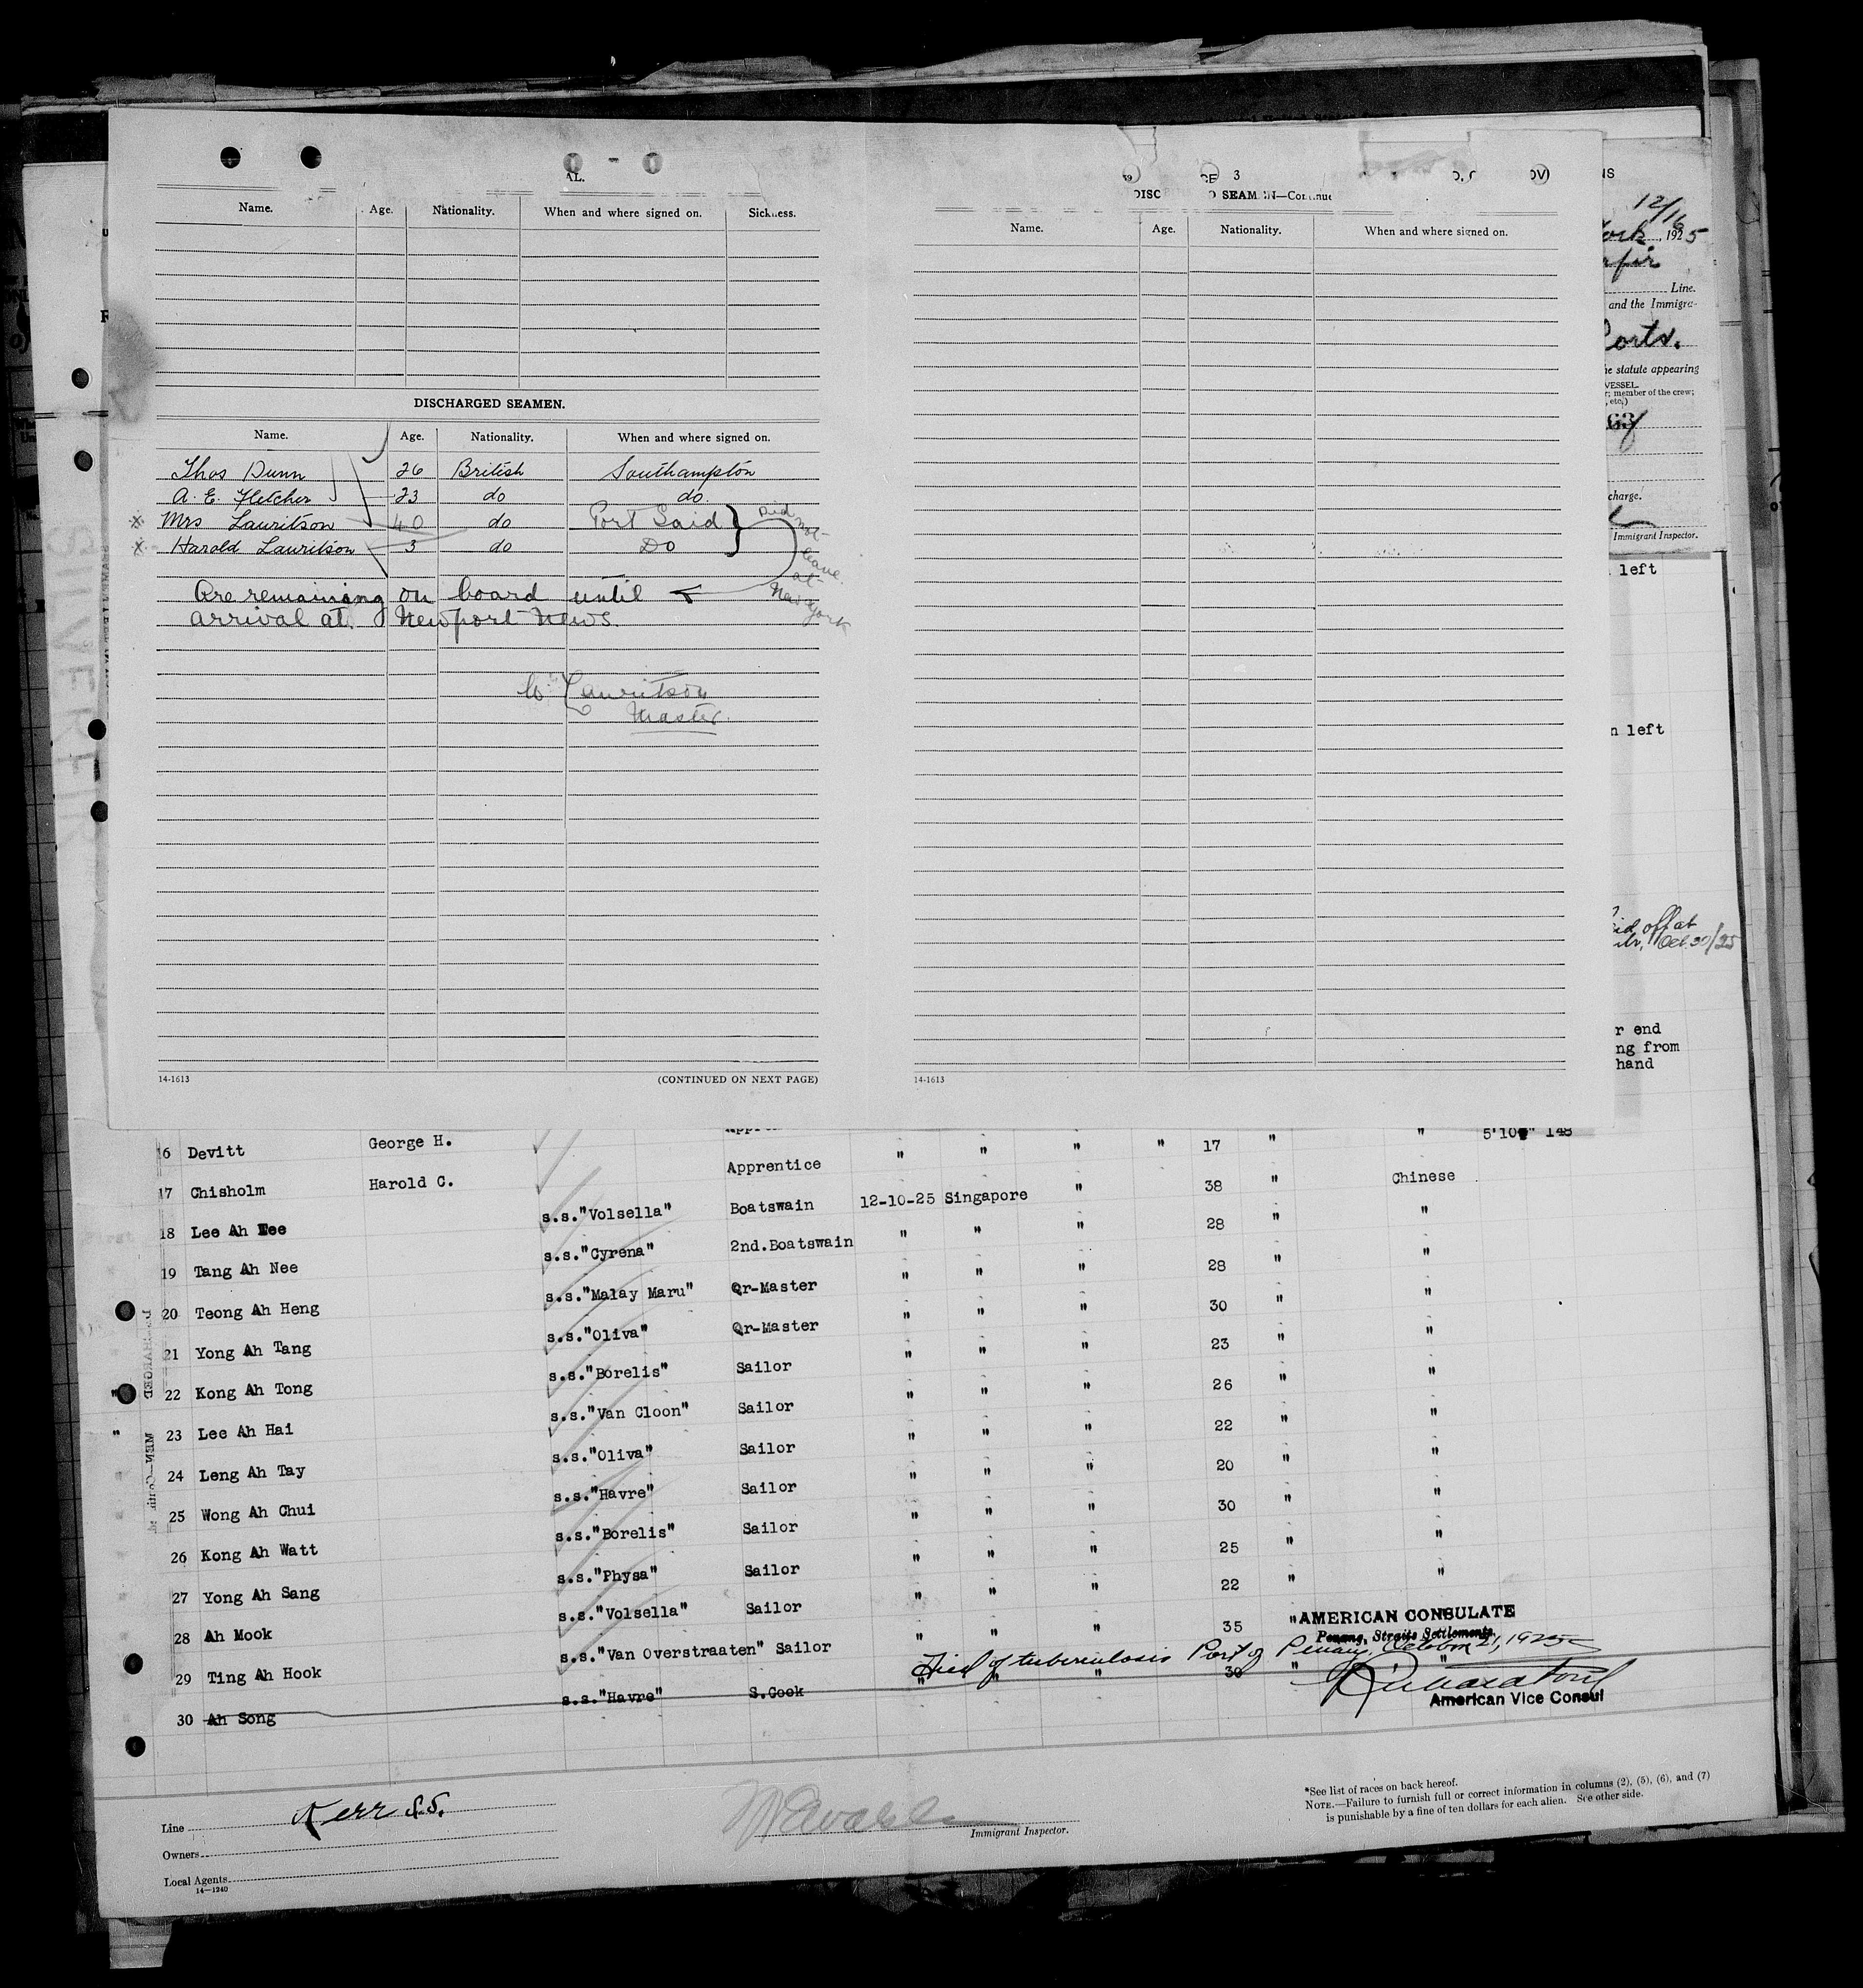 AL.
Name. Age. Nationality. When and where signed on. Sickness.
DISCHARGED SEAMEN.
Name. Age. Nationality. When and where signed on.
Thos Dunn 26 British Southampton
A. E. Fletcher 23 do do.
x Mrs Lauritson 40 do Port Said
x Harold Lauritson 3 do Do
Did not leave at New York
Are remaining on board until
arrival at Newport News.
Lauritson
Master.
14-1613 (CONTINUED ON NEXT PAGE)
3
DISC SEAM N—Continue
Name. Age. Nationality. When and where signed on.
14-1613
NS
12/16
York, 1925
Line.
and the Immigra-
Ports.
he statute appearing
VESSEL
r; member of the crew;
, etc.)
charge.
Immigrant Inspector.
left
n left
id off at
Oct. 30/25
r end
ng from
hand
SILVERFIR
16 Devitt George H. " " " " 17 " " 5'10" 148
17 Chisholm Harold C. Apprentice " 38 " Chinese
18 Lee Ah Nee s.s."Volsella" Boatswain 12-10-25 Singapore " 28 " "
19 Tang Ah Nee s.s."Cyrena" 2nd.Boatswain " " " 28 " "
20 Teong Ah Heng s.s."Malay Maru" Qr-Master " " " 30 " "
21 Yong Ah Tang s.s."Oliva" Qr-Master " " " 23 " "
22 Kong Ah Tong s.s."Borelis" Sailor " " " 26 " "
23 Lee Ah Hai s.s."Van Cloon" Sailor " " " 22 " "
24 Leng Ah Tay s.s."Oliva" Sailor " " " 20 " "
25 Wong Ah Chui s.s."Havre" Sailor " " " 30 " "
26 Kong Ah Watt s.s."Borelis" Sailor " " " 25 " "
27 Yong Ah Sang s.s."Physa" Sailor " " " 22 " "
28 Ah Mook s.s."Volsella" Sailor " " " 35 " "
29 Ting Ah Hook s.s."Van Overstraaten" Sailor " " " 30 " "
30 Ah Song s.s."Havre" S.Cook
AMERICAN CONSULATE
Penang, Straits Settlements.
Died of tuberculosis Port of Penang, October 21, 1925
American Vice Consul
Line Kerr S.S.
Owners
Local Agents
14—1240
Immigrant Inspector.
*See list of races on back hereof.
NOTE.—Failure to furnish full or correct information in columns (2), (5), (6), and (7)
is punishable by a fine of ten dollars for each alien. See other side.